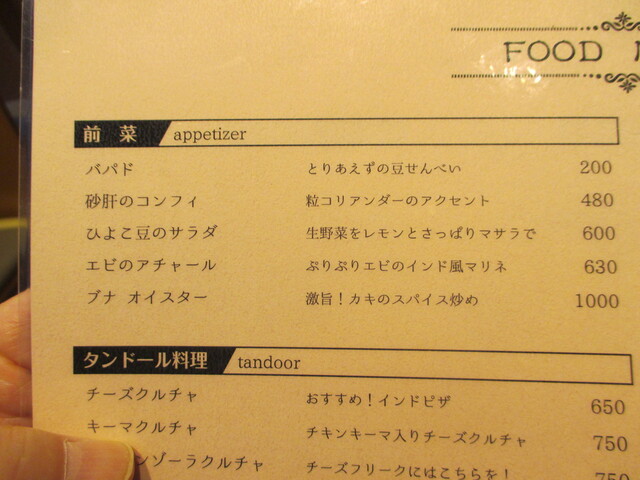 FOOD
前 菜 appetizer
パパド とりあえずの豆せんべい 200
砂肝のコンフィ 粒コリアンダーのアクセント 480
ひよこ豆のサラダ 生野菜をレモンとさっぱりマサラで 600
エビのアチャール ぷりぷりエビのインド風マリネ 630
ブナ オイスター 激旨！カキのスパイス炒め 1000
タンドール料理 tandoor
チーズクルチャ おすすめ！インドピザ 650
キーマクルチャ チキンキーマ入りチーズクルチャ 750
ンゾーラクルチャ チーズフリークにはこちらを！ 750